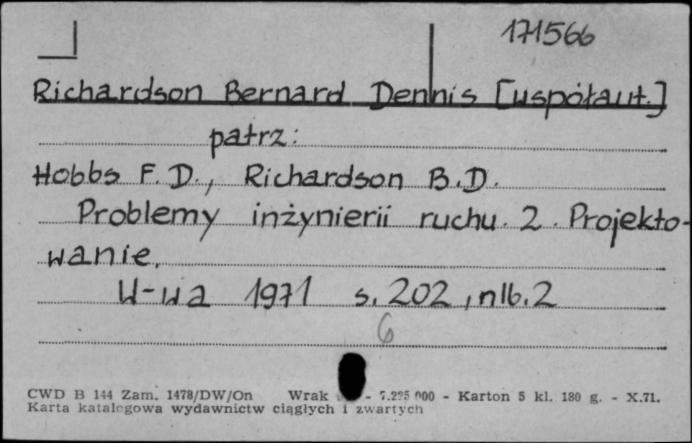 171566
Richardson Bernard Dennis [współaut.]
patrz:
Hobbs F. D., Richardson B.D.
Problemy inżynierii ruchu. 2. Projekto-
wanie.
W-wa 1971 s. 202, nlb. 2
6
CWD B 144 Zam. 1478/DW/On Wrak - 7.225 000 - Karton 5 kl. 180 g. - X.71.
Karta katalogowa wydawnictw ciągłych i zwartych